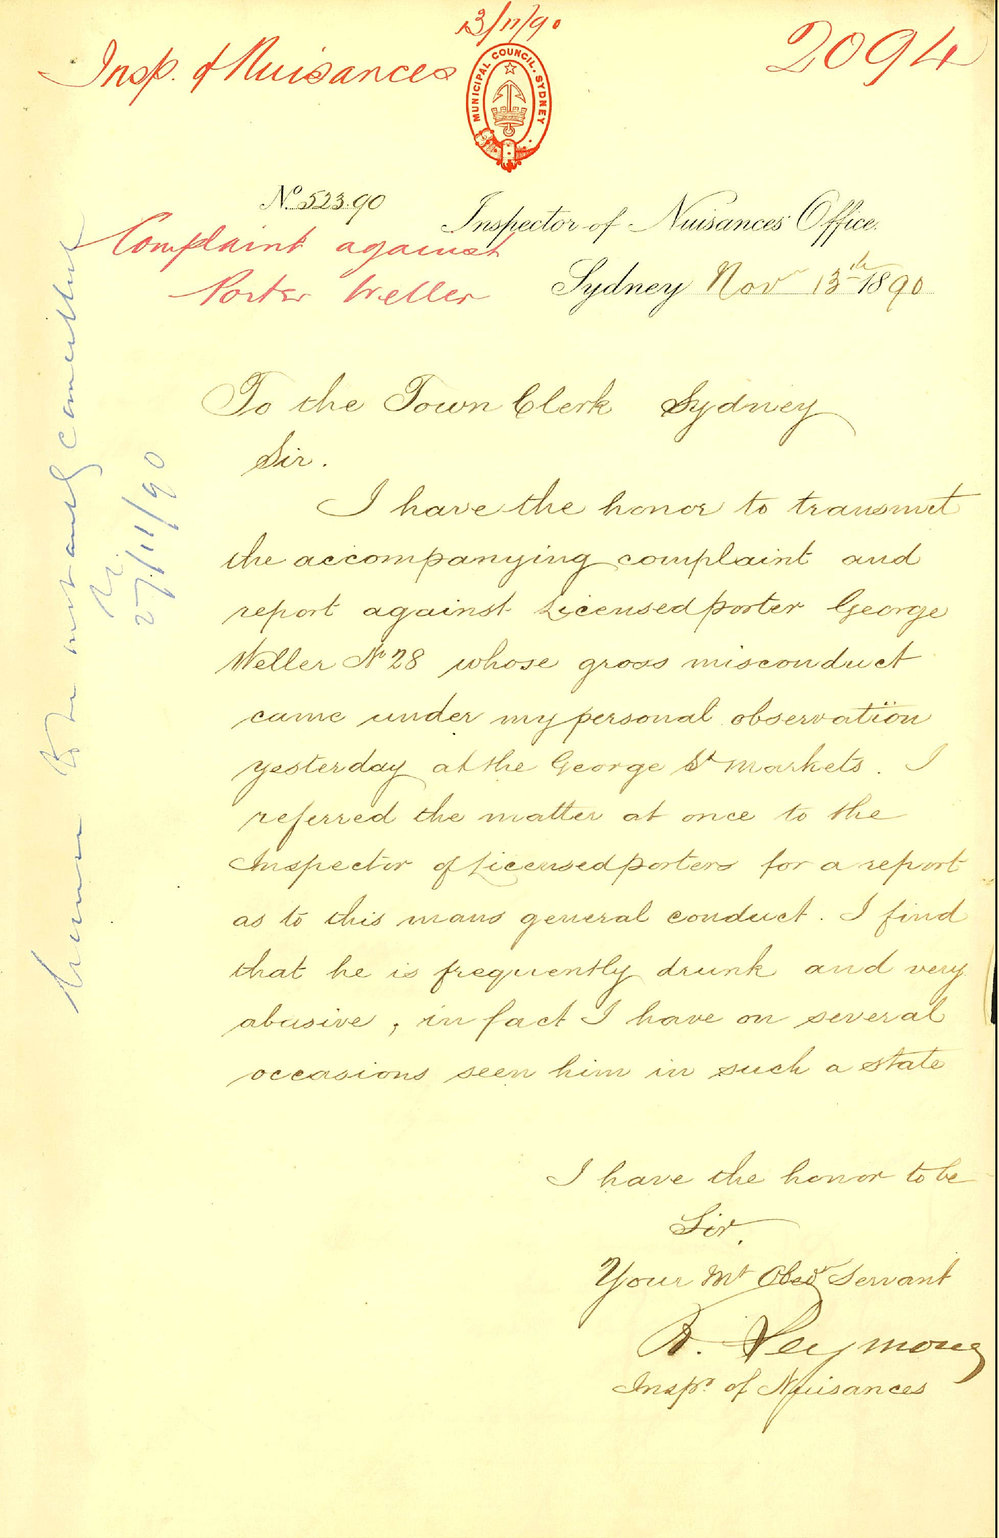 13/11/90
Insp. of Nuisances
2094
MUNICIPAL COUNCIL. SYDNEY
No. 523.90
Inspector of Nuisances' Office.
Complaint against
Porter Weller
Sydney Nov 13th 1890
To the Town Clerk Sydney
Sir.
I have the honor to transmit
the accompanying complaint and
report against Licensed porter George
Weller No 28 whose gross misconduct
came under my personal observation
yesterday at the George St Markets. I
referred the matter at once to the
Inspector of Licensed porters for a report
as to this mans general conduct. I find
that he is frequently drunk and very
abusive, in fact I have on several
occasions seen him in such a state
I have the honor to be
Sir.
Your Mt Obedt Servant
R. Seymour
Inspr. of Nuisances
27/11/90